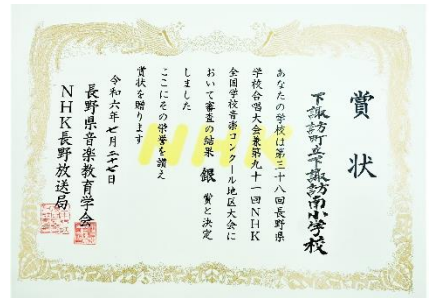 賞状
下諏訪町立下諏訪南小学校
あなたの学校は第三十八回長野県
学校合唱大会兼第九十一回NHK
全国学校音楽コンクール地区大会に
おいて審査の結果 銀 賞と決定
しました
ここにその栄誉を讃え
賞状を贈ります
令和六年七月二十七日
長野県音楽教育学会
NHK長野放送局
NHK